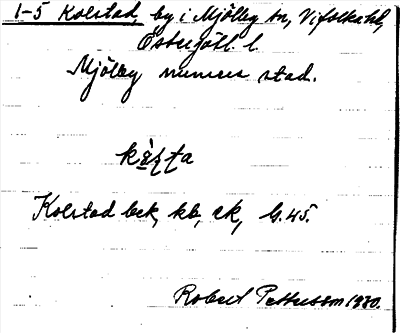 1-5 Kolstad, by i Mjölby sn, Vifolka hd,
Östergötl. l.
Mjölby numera stad.
Kolstad bek, kb, ek, G. 45.
Robert Pettersson 1930.